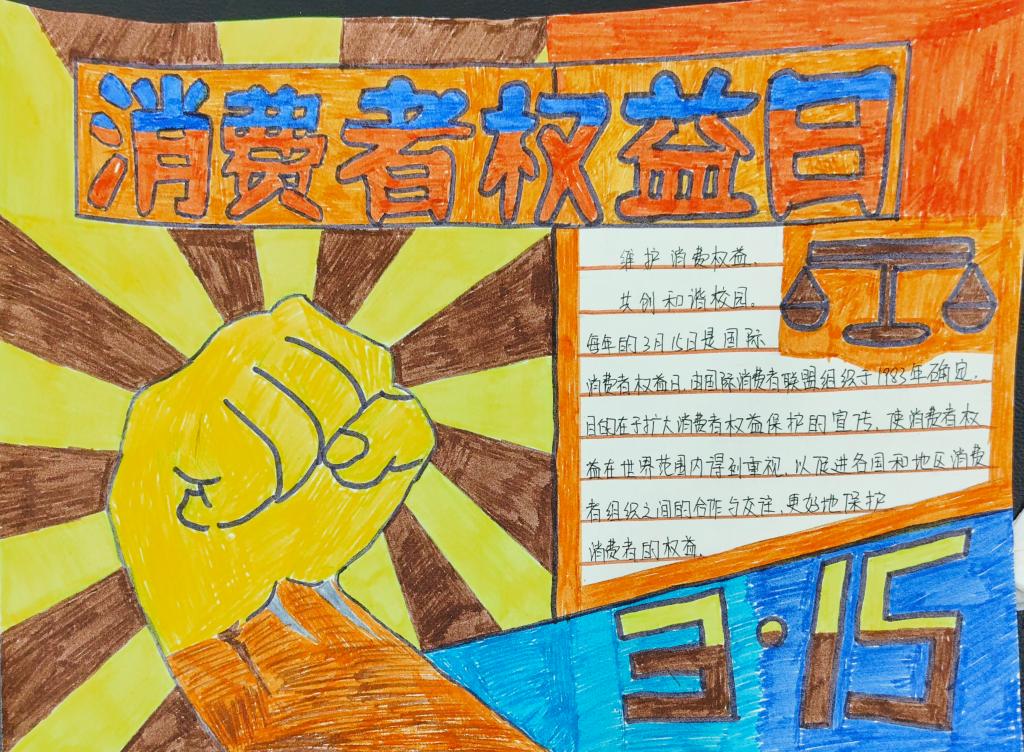 消费者权益日
维护消费权益、
共创和谐校园。
每年的3月15日是国际
消费者权益日,由国际消费者联盟组织于1983年确定,
目的在于扩大消费者权益保护的宣传,使消费者权
益在世界范围内得到重视,以促进各国和地区消费
者组织之间的合作与交往,更好地保护
消费者的权益.
3·15